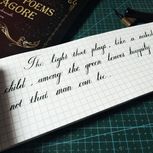 POEMS
TAGORE
The light that plays, like a naked
child, among the green leaves happily
not that man can lie.